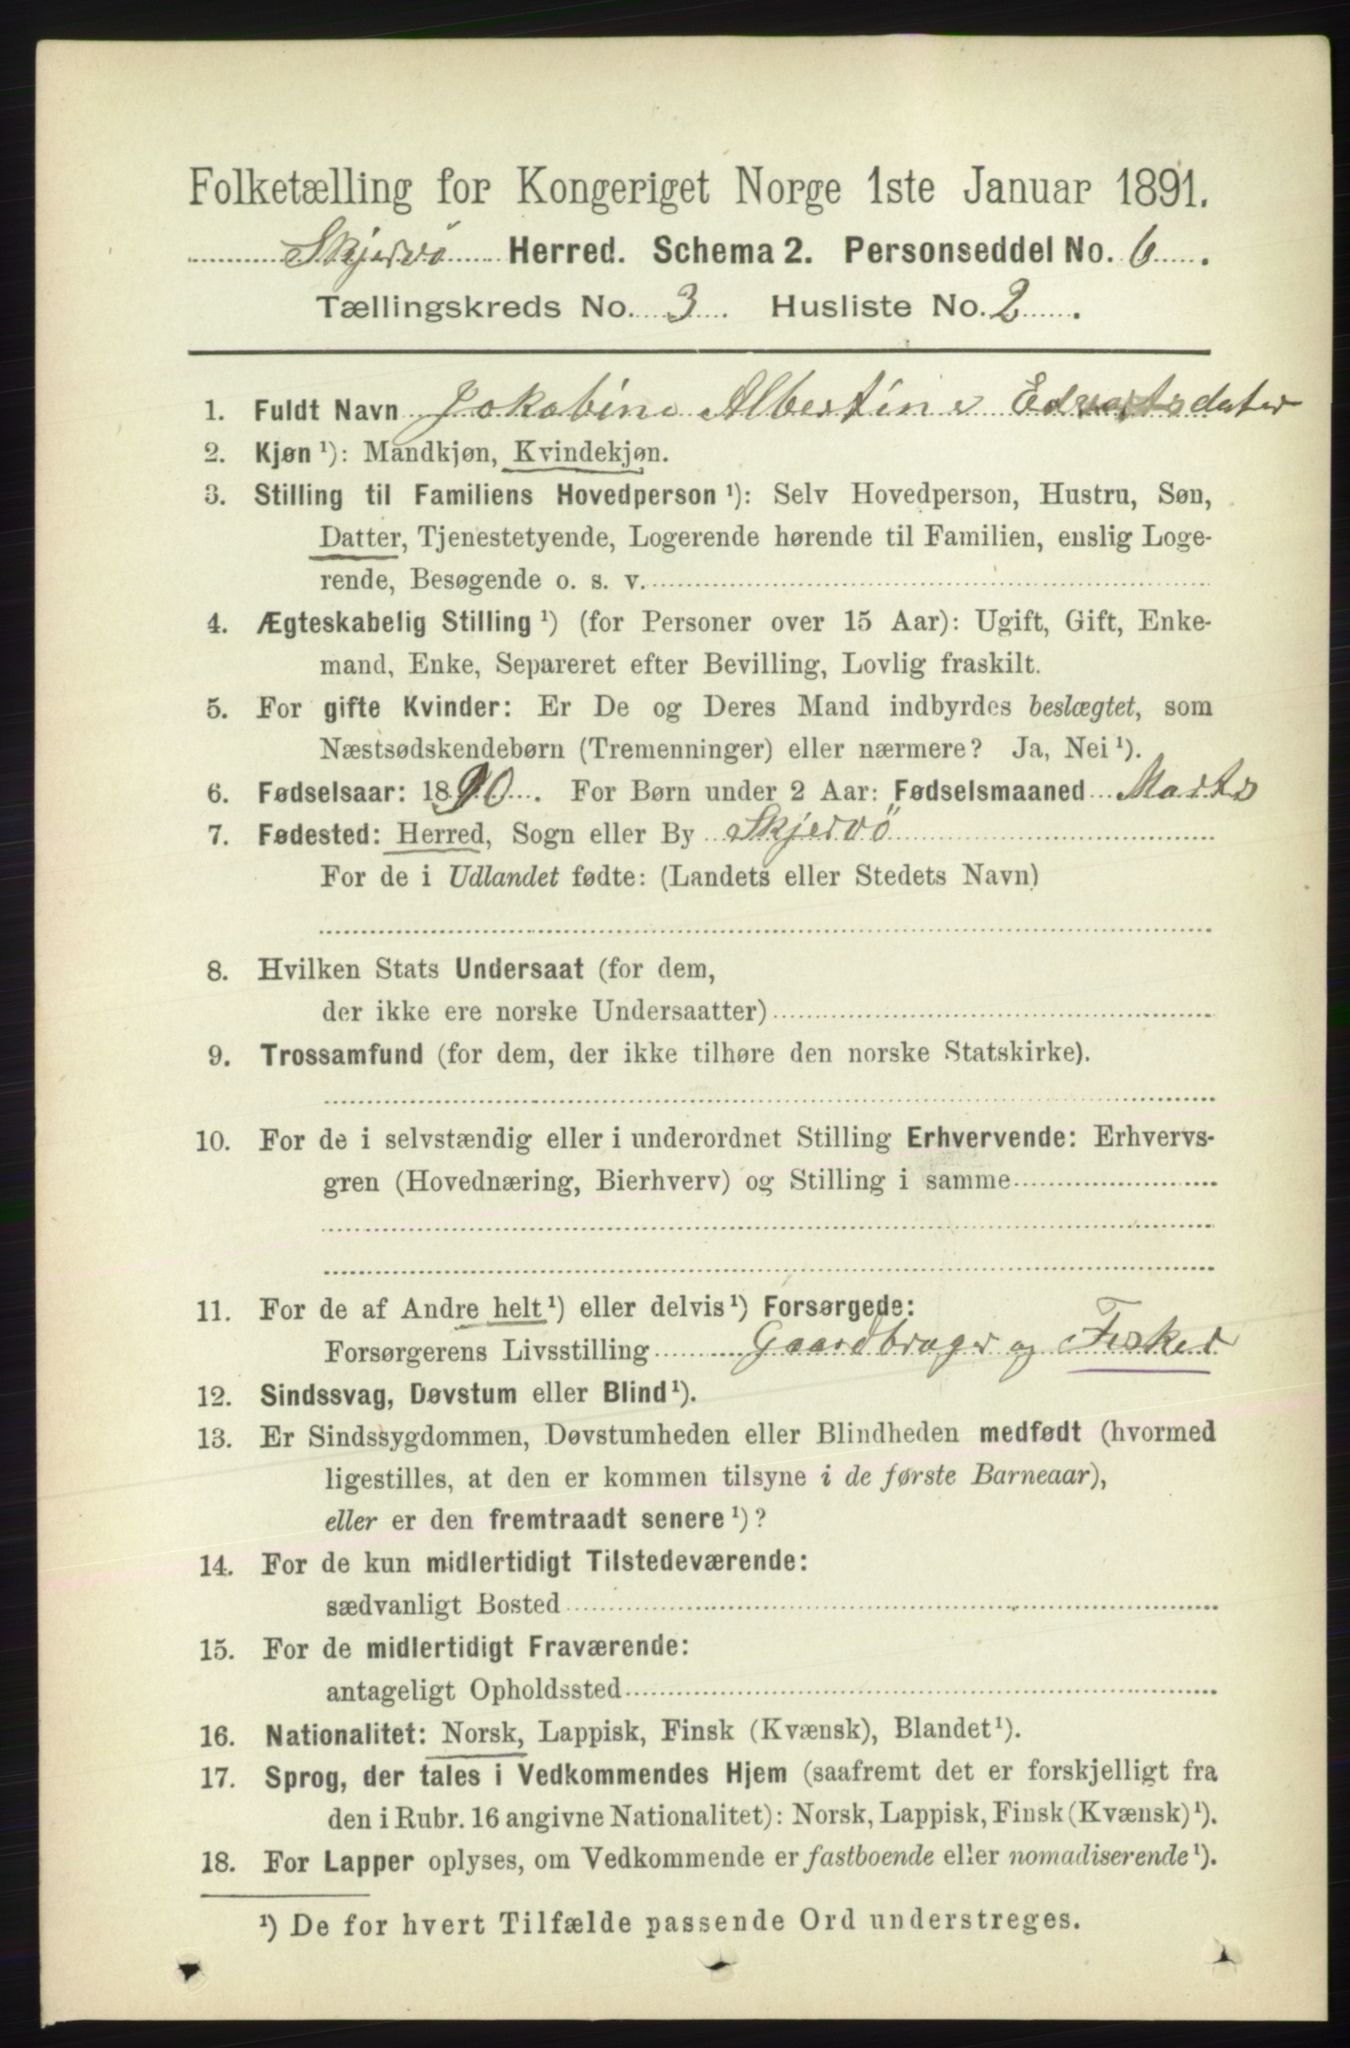 Folketælling for Kongeriget Norge 1ste Januar 1891.
Skjervö Herred. Schema 2. Personseddel No. 6.
Tællingskreds No. 3. Husliste No. 2.
1. Fuldt Navn Jakobine Albertine Edvartsdater
2. Kjøn ¹): Mandkjøn, Kvindekjøn.
3. Stilling til Familiens Hovedperson ¹): Selv Hovedperson, Hustru, Søn,
Datter, Tjenestetyende, Logerende hørende til Familien, enslig Loge-
rende, Besøgende o. s. v.
4. Ægteskabelig Stilling ¹) (for Personer over 15 Aar): Ugift, Gift, Enke-
mand, Enke, Separeret efter Bevilling, Lovlig fraskilt.
5. For gifte Kvinder: Er De og Deres Mand indbyrdes beslægtet, som
Næstsødskendebørn (Tremenninger) eller nærmere? Ja, Nei ¹).
6. Fødselsaar: 1890. For Børn under 2 Aar: Fødselsmaaned Marts
7. Fødested: Herred, Sogn eller By Skjervö
For de i Udlandet fødte: (Landets eller Stedets Navn)
8. Hvilken Stats Undersaat (for dem,
der ikke ere norske Undersaatter)
9. Trossamfund (for dem, der ikke tilhøre den norske Statskirke).
10. For de i selvstændig eller i underordnet Stilling Erhvervende: Erhvervs-
gren (Hovednæring, Bierhverv) og Stilling i samme
11. For de af Andre helt ¹) eller delvis ¹) Forsørgede:
Forsørgerens Livsstilling Gaardbruger og Fisker
12. Sindssvag, Døvstum eller Blind ¹).
13. Er Sindssygdommen, Døvstumheden eller Blindheden medfødt (hvormed
ligestilles, at den er kommen tilsyne i de første Barneaar),
eller er den fremtraadt senere ¹)?
14. For de kun midlertidigt Tilstedeværende:
sædvanligt Bosted
15. For de midlertidigt Fraværende:
antageligt Opholdssted
16. Nationalitet: Norsk, Lappisk, Finsk (Kvænsk), Blandet ¹).
17. Sprog, der tales i Vedkommendes Hjem (saafremt det er forskjelligt fra
den i Rubr. 16 angivne Nationalitet): Norsk, Lappisk, Finsk (Kvænsk) ¹).
18. For Lapper oplyses, om Vedkommende er fastboende eller nomadiserende ¹).
¹) De for hvert Tilfælde passende Ord understreges.